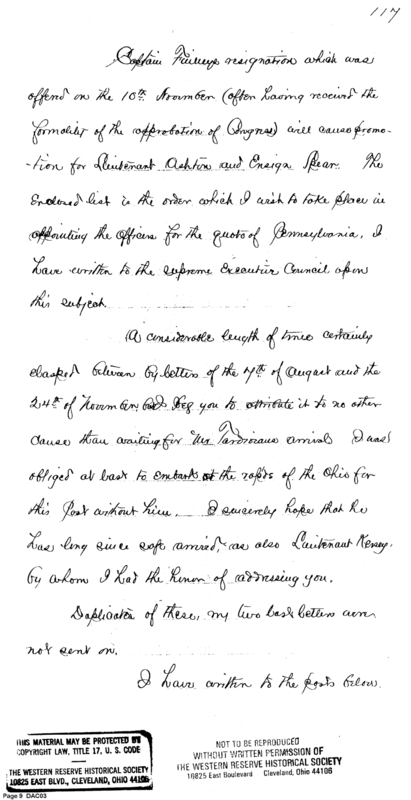 117
Captain Finneys resignation which was
offered on the 10th November (after having received the
formality of the approbation of Congress) will cause promo-
-tion for Lieutenant Ashton and Ensign Spear. The
Enclosed list is the order which I wish to take place in
appointing the officers for the quota of Pennsylvania. I
have written to the supreme Executive Council upon
this subject.
A considerable length of time certainly
elapsed between my letters of the 7th of August and the
24th of November, beg you to attribute it to no other
cause than waiting for Mr Tardiveaus arrival I was
obliged at last to embark at the rapids of the Ohio for
this Post without him. I sincerely hope that he
has long since safe arrived, as also Lieutenant Kersey.
by whom I had the honor of addressing you.
Duplicates of these, my two last letters were
not sent on.
I have written to the posts below.
THIS MATERIAL MAY BE PROTECTED BY
COPYRIGHT LAW, TITLE 17, U. S. CODE
THE WESTERN RESERVE HISTORICAL SOCIETY
10825 EAST BLVD., CLEVELAND, OHIO 44106
NOT TO BE REPRODUCED
WITHOUT WRITTEN PERMISSION OF
THE WESTERN RESERVE HISTORICAL SOCIETY
10825 East Boulevard Cleveland, Ohio 44106
Page 9 DAC03